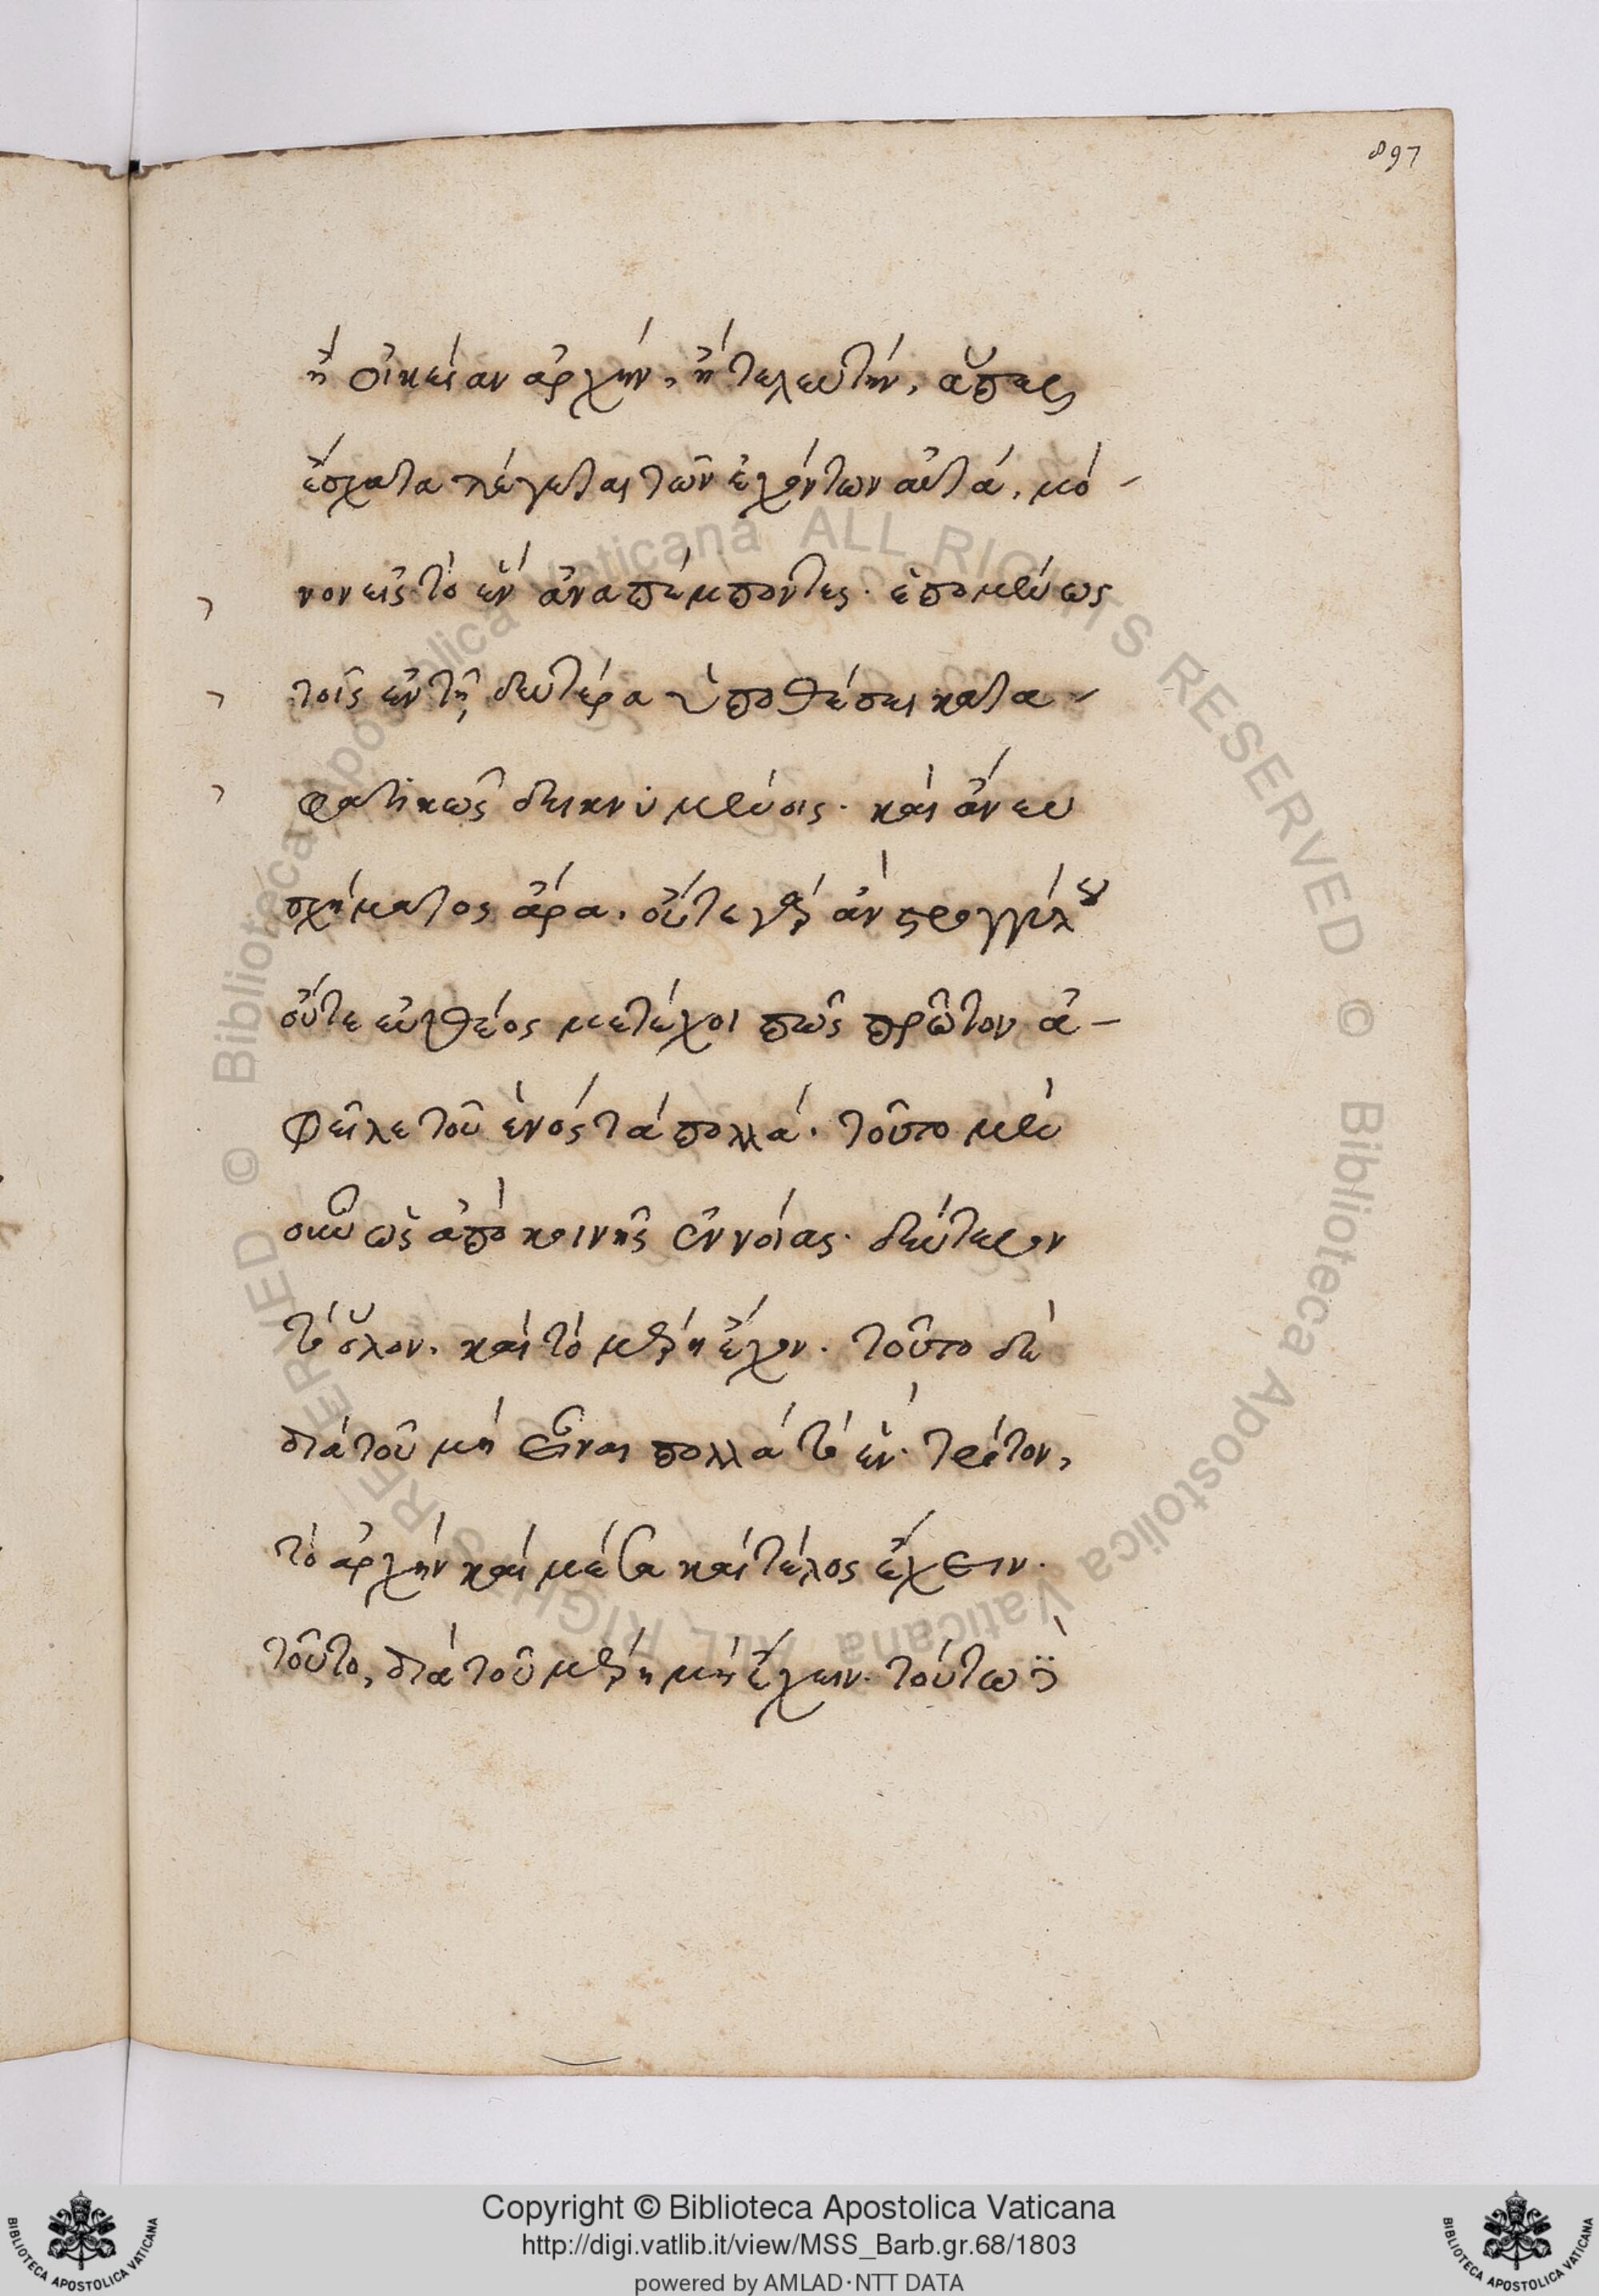 897
ἢ οἰκείαν ἀρχὴν, ἢ τελευτὴν, ἅπερ
ἔσχατα λέγεται τῶν ἐχόντων αὐτά, μό-
νον εἰς τὸ ἓν ἀναπέμποντες· ἑπομένως
τοῖς ἐν τῇ δευτέρα ὑποθέσει κατα-
φατικῶς δεικνυμένοις· καὶ ἄνευ
σχήματος ἄρα. οὔτε γὰρ ἂν στρογγύλου
οὔτε εὐθέος μετέχοι πῶς πρῶτον ἀ-
φεῖλε τοῦ ἑνὸς τὰ πολλά· τοῦτο μὲν
οὖν ὡς ἀπὸ κοινῆς ἐννοίας· δεύτερον
τὸ ὅλον. καὶ τὸ μέρη ἔχον. τοῦτο δὲ
διὰ τοῦ μὴ εἶναι πολλὰ τὸ ἕν· τρίτον,
τὸ ἀρχὴν καὶ μέσα καὶ τέλος ἔχειν.
τοῦτο, διὰ τοῦ μέρη μὴ ἔχειν. τούτω
Copyright © Biblioteca Apostolica Vaticana
http://digi.vatlib.it/view/MSS_Barb.gr.68/1803
powered by AMLAD·NTT DATA
BIBLIOTECA APOSTOLICA VATICANA
BIBLIOTECA APOSTOLICA VATICANA
© Biblioteca Apostolica Vaticana ALL RIGHTS RESERVED © Biblioteca Apostolica Vaticana ALL RIGHTS RESERVED